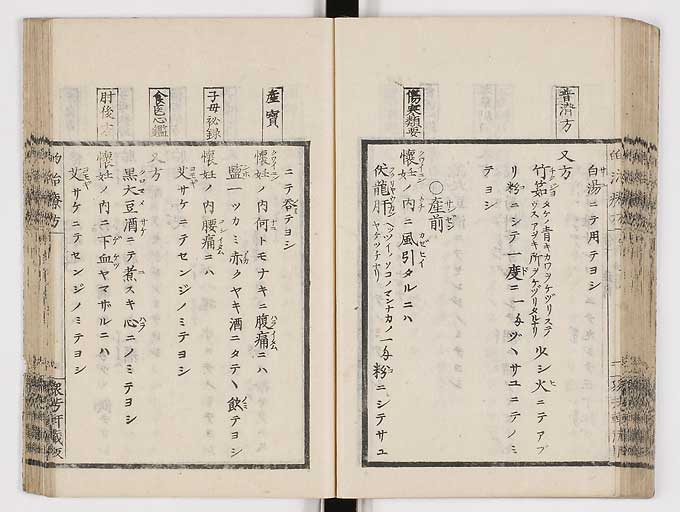 普済方
白湯ニテ用テヨシ
又方
竹茹タケノ青キカワヲケヅリステウスアヲキ所ヲケヅリタルナリ 少シ火ニテアブ
リ粉ニシテ一度ニ一匁ヅヽサユニテノミ
テヨシ
〇産前
傷寒類要
懐妊ノ内ニ風引タルニハ
伏龍肝ヘツイノソコノマンナカノヤケツチナリ 一匁粉ニシテサユ
ニテ呑テヨシ
産寶
懐妊ノ内何トモナキニ腹痛ニハ
塩一ツカミ赤クヤキ酒ニタテヽ飲テヨシ
子母秘録
懐妊ノ内腰痛ニハ
艾サケニテセンジノミテヨシ
食医心鑑
又方
黒大豆酒ニテ煮スキ心ニノミテヨシ
肘後方
懐妊ノ内ニ下血ヤマザルニハ
艾サケニテセンジノミテヨシ